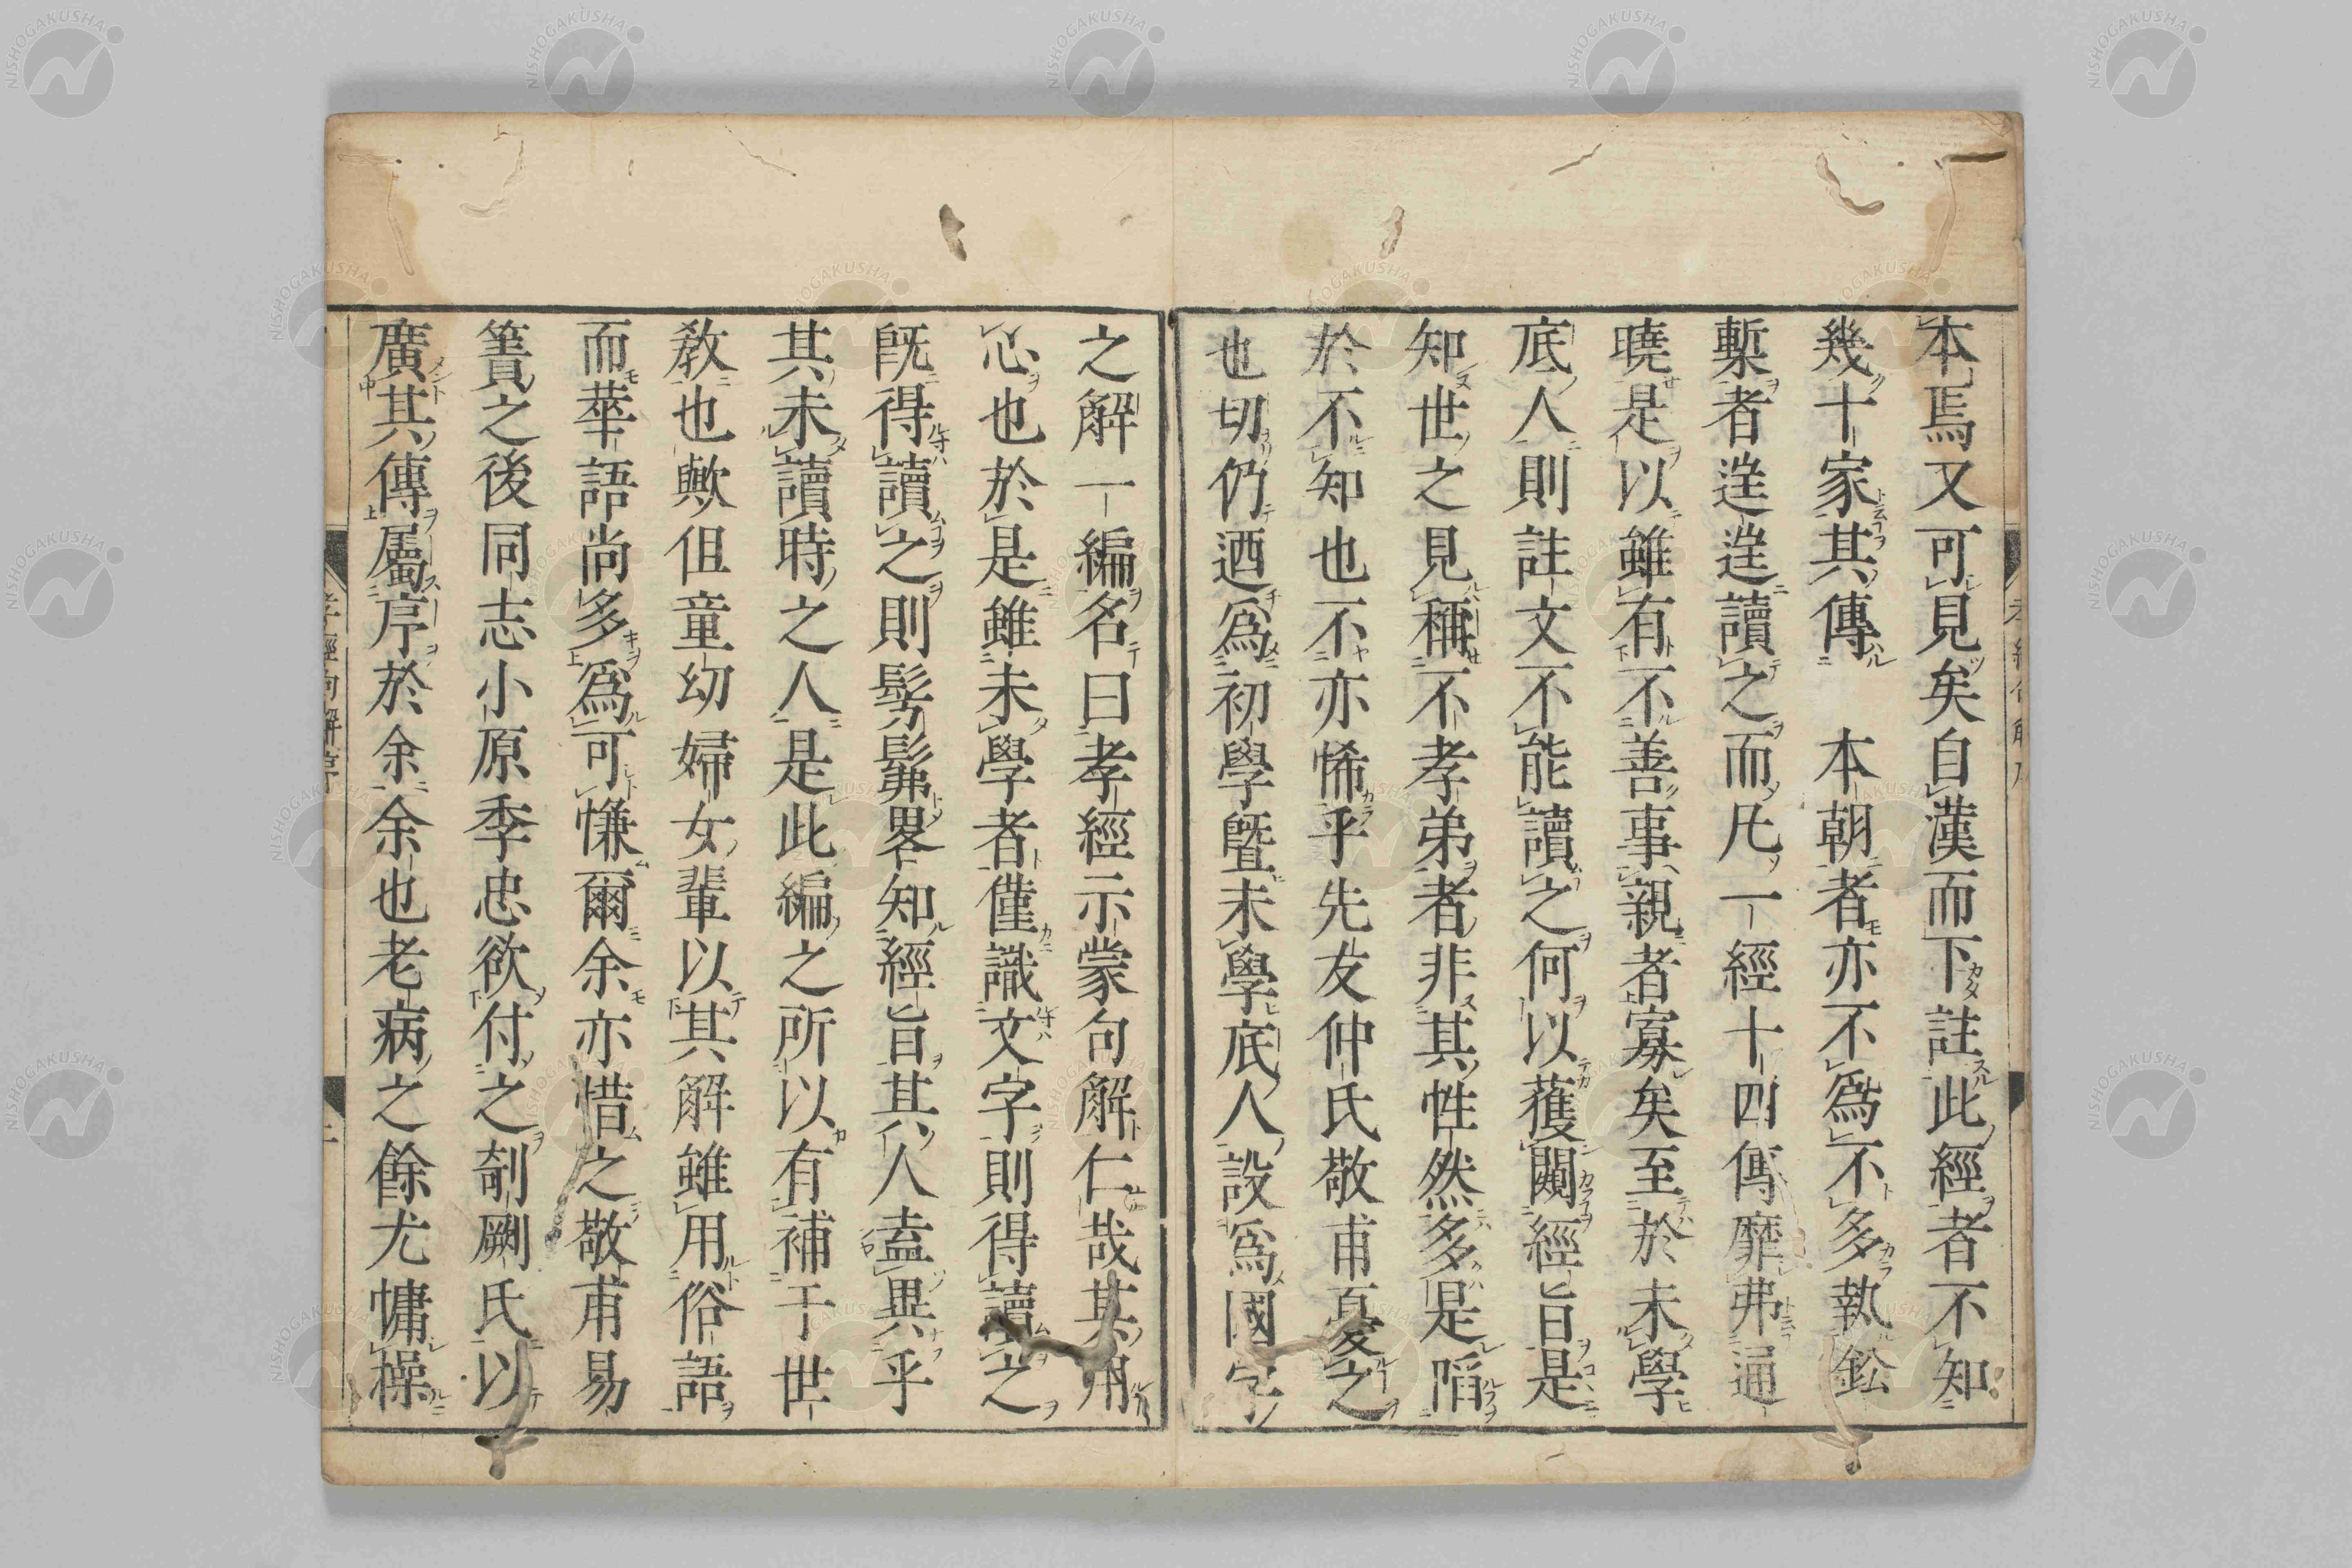 本焉又可見矣自漢而下註此經者不知
幾十家其傳　本朝者亦不爲不多執鉛
槧者逬逬讀之而凡一經十四傳靡弗通
曉是以雖有不善事親者寡矣至於未學
底人則註文不能讀之何以獲闚經旨是
知世之見稱不孝弟者非其性然多是陷
於不知也不亦悕乎先友仲氏敬甫憂之
也切仍迺爲初學曁未學底人設爲國字
之解一編名曰孝經示蒙句解仁哉其用
心也於是雖未學者僅識文字則得讀之
旣得讀之則髣髴畧知經旨其人盍異乎
其未讀時之人是此編之所以有補于世
敎也歟但童幼婦女輩以其解雖用俗語
而華語尚多爲可慊爾余亦惜之敬甫易
簀之後同志小原季忠欲付之剞劂氏以
廣其傳屬序於余余也老病之餘尤慵操
孝經句解序